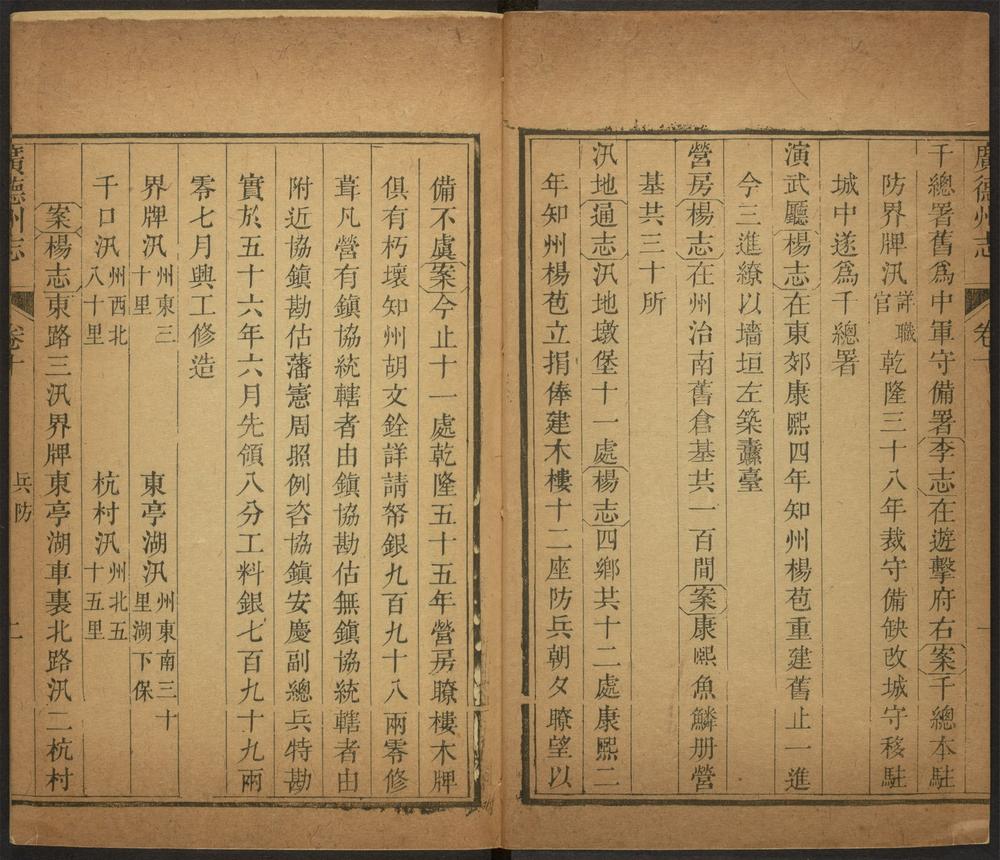 廣德州志 卷十
千總署舊爲中軍守備署李志在遊擊府右案千總本駐
防界牌汛詳職官乾隆三十八年裁守備缺改城守移駐
城中遂爲千總署
演武廳楊志在東郊康熙四年知州楊苞重建舊止一進
今三進繚以墻垣左築纛臺
營房楊志在州治南舊倉基共一百間案康熙魚鱗册營
基共三十所
汛地通志汛地墩堡十一處楊志四鄉共十二處康熙二
年知州楊苞立捐俸建木樓十二座防兵朝夕瞭望以
備不虞案今止十一處乾隆五十五年營房瞭樓木牌
俱有朽壞知州胡文銓詳請帑銀九百九十八兩零修
葺凡營有鎮協統轄者由鎮協勘估無鎮協統轄者由
附近協鎮勘估藩憲周照例咨協鎮安慶副總兵特勘
實於五十六年六月先領八分工料銀七百九十九兩
零七月興工修造
界牌汛州東三十里 東亭湖汛州東南三十里湖下保
千口汛州西北八十里 杭村汛州北五十五里
案楊志東路三汛界牌東亭湖車裏北路汛二杭村
廣德州志 卷十 兵防 二